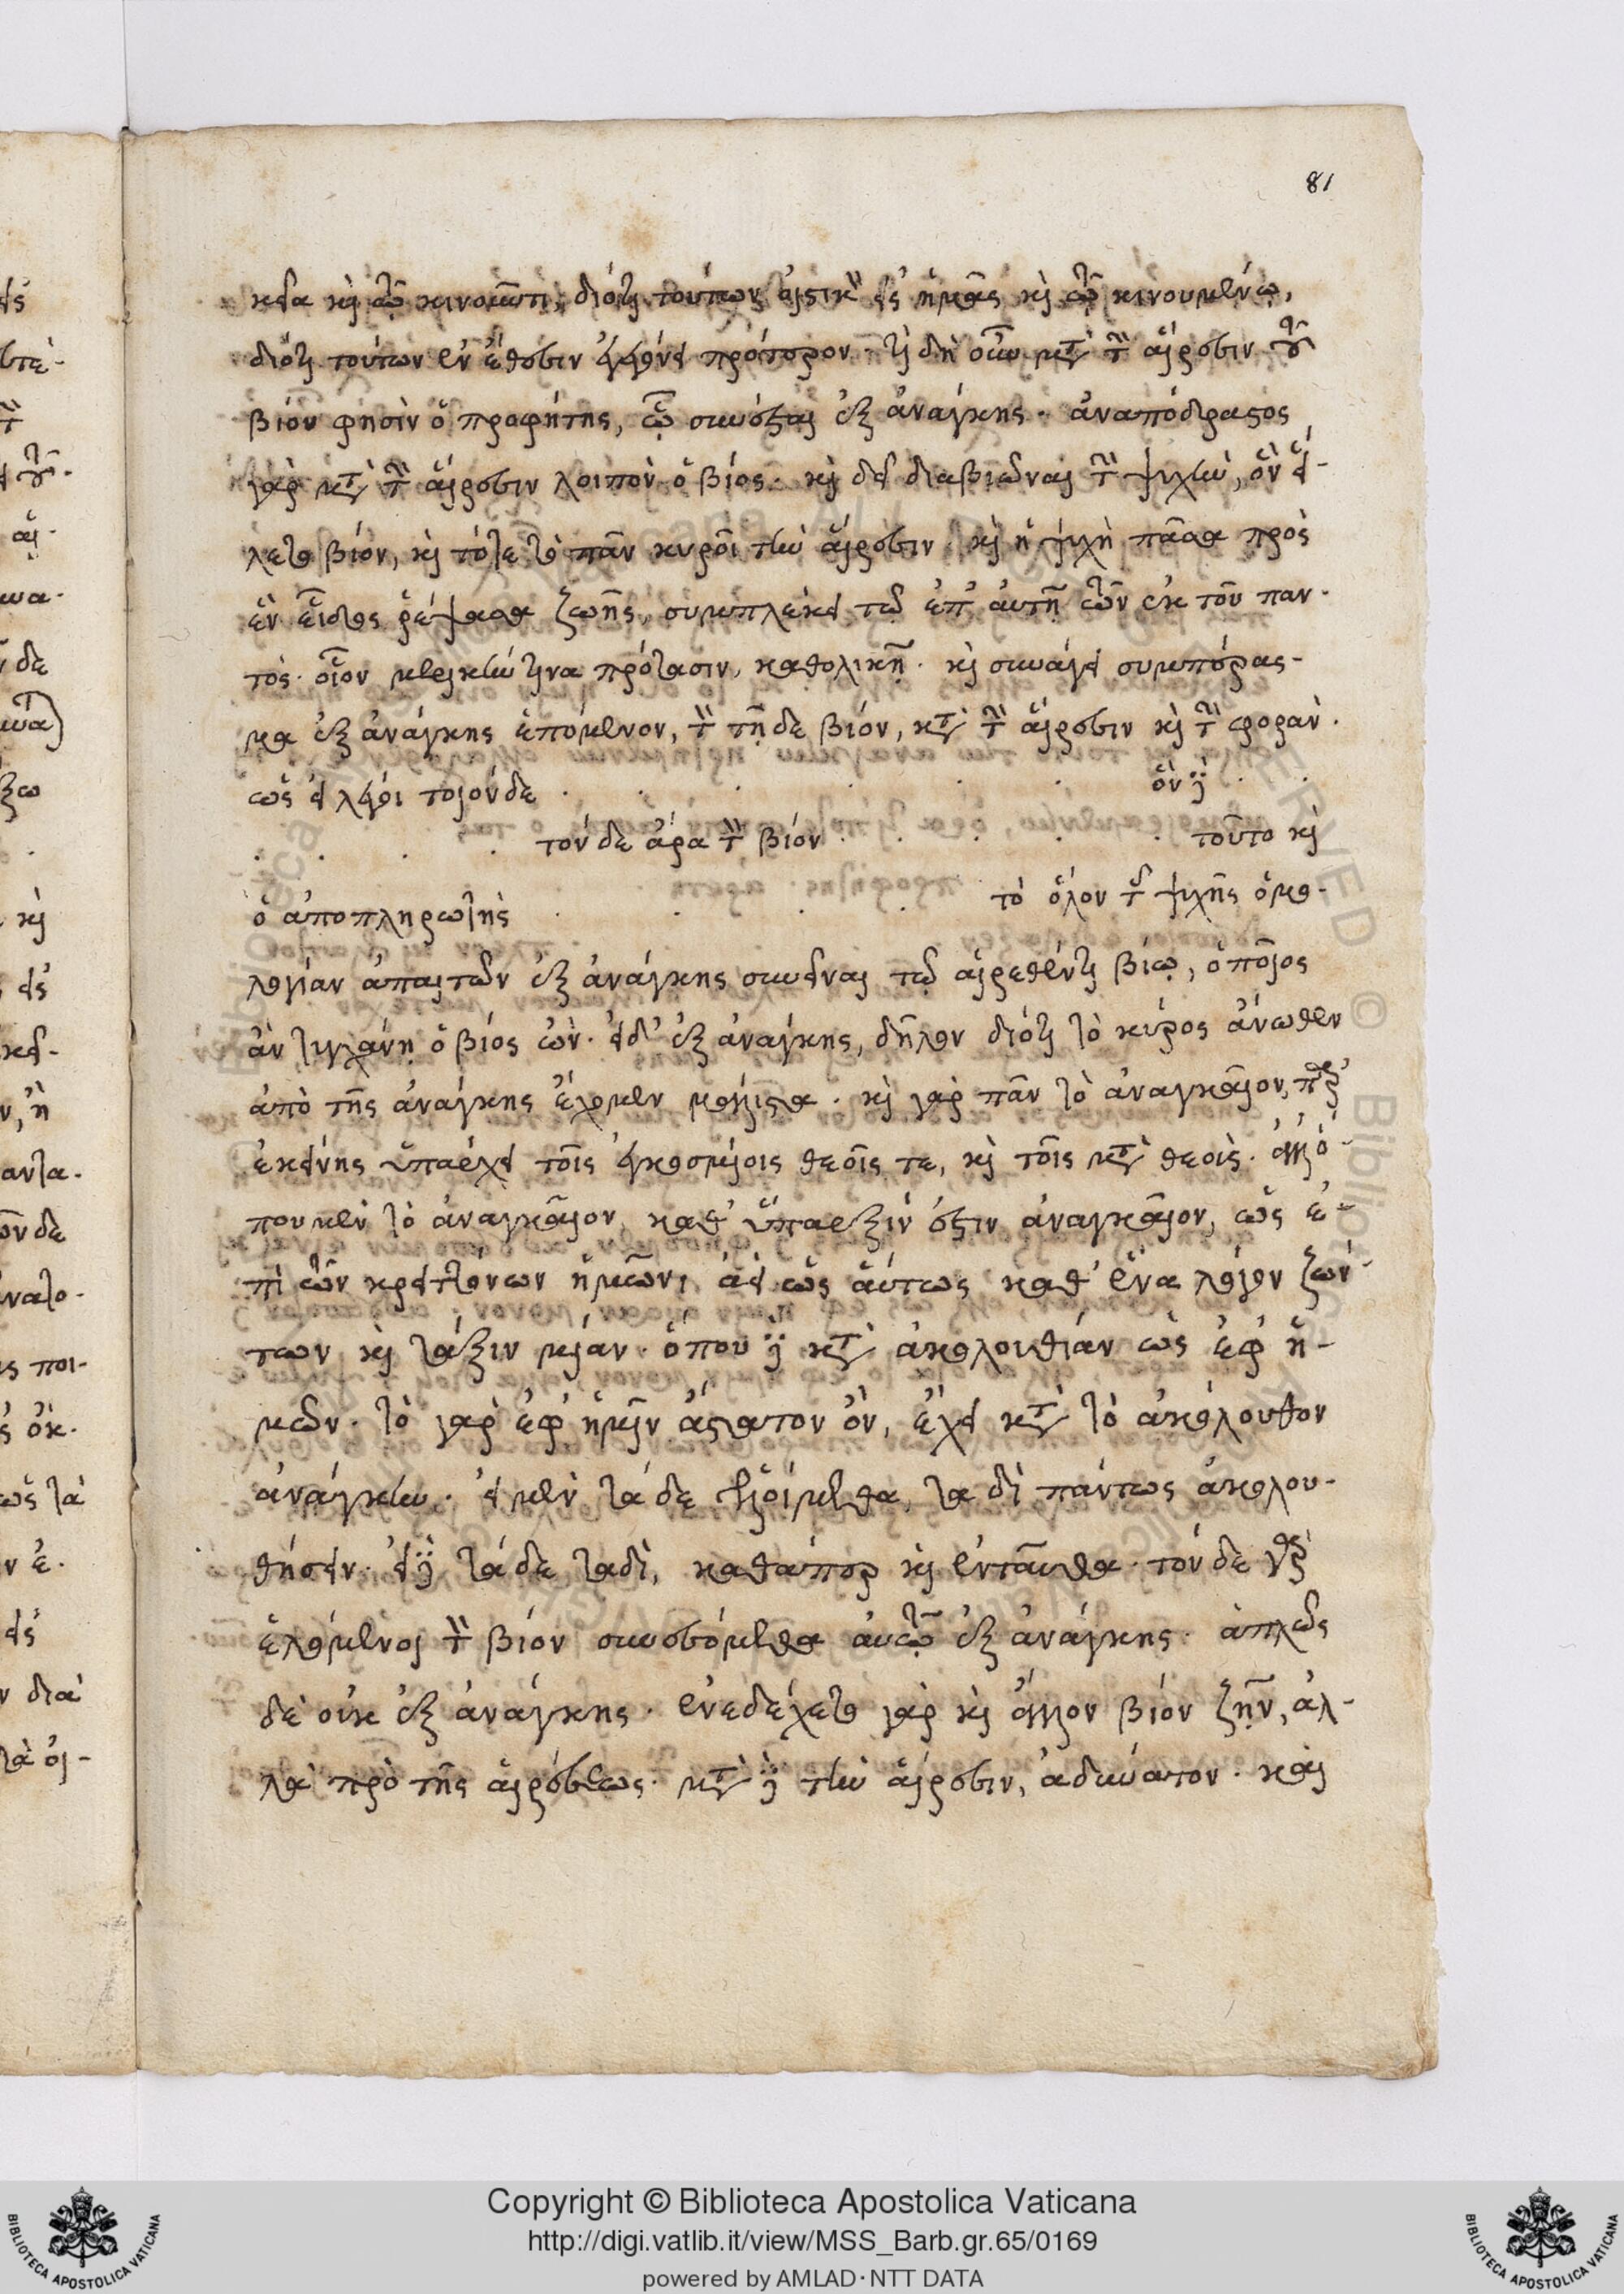 81
κεῖα καὶ τῷ κινοῦντι, διότι τούτων οἰστικὸν εἰς ἡμᾶς καὶ τῷ κινουμένῳ,
διότι τούτων ἐν ἐθέσιν ἐγεγόνει πρότερον. τί δὴ οὖν μετὰ τὴν αἵρεσιν τοῦ
βίου φησὶν ὁ προφήτης, ᾧ συνέσται ἐξ ἀνάγκης. ἀναπόδραστος
γὰρ μετὰ τὴν αἵρεσιν λοιπὸν ὁ βίος. καὶ δεῖ διαβιῶναι τὴν ψυχὴν, ὃν εἵ-
λετο βίον, καὶ τότε τὸ πᾶν κυροῖ τὴν αἵρεσιν. καὶ ἡ ψυχὴ πᾶσα πρὸς
ἓν εἶδος ῥέψασα ζωῆς, συμπλέκει τῷ ἐπ' αὐτῇ τῶν ἐκ τοῦ παν-
τός. οἷον μεικτήν τινα πρότασιν, καθολικῇ. καὶ συνάγει συμπέρασ-
μα ἐξ ἀνάγκης ἑπόμενον, τὸν τῇδε βίον, κατὰ τὴν αἵρεσιν καὶ τὴν φοράν.
ὡς εἰ λέγοι τοιόνδε . . . . . . ὃν δὲ . .
. . . . τόνδε ἄρα τὸν βίον . . . . . τοῦτο καὶ
ὁ ἀποπληρωτὴς . . . . τὸ ὅλον τῆς ψυχῆς ὁμο-
λογίαν ἀπαιτῶν ἐξ ἀνάγκης συνεῖναι τῷ αἱρεθέντι βίῳ, ὁποῖος
ἂν τυγχάνῃ ὁ βίος ὤν. εἰ δ' ἐξ ἀνάγκης, δῆλον διότι τὸ κῦρος ἄνωθεν
ἀπὸ τῆς ἀνάγκης ἔχομεν μάλιστα. καὶ γὰρ πᾶν τὸ ἀναγκαῖον, παρ'
ἐκείνης ὑπάρχει τοῖς ἐγκοσμίοις θεοῖς τε, καὶ τοῖς μετὰ θεοὺς. ἀλλ' ὅ-
που μὲν τὸ ἀναγκαῖον, καθ' ὕπαρξίν ἐστιν ἀναγκαῖον, ὡς ἐ-
πὶ τῶν κρειττόνων ἡμῶν, ἀεὶ ὡσαύτως καθ' ἕνα λόγον ζών-
των καὶ τάξιν μίαν. ὅπου δὲ κατὰ ἀκολουθίαν ὡς ἐφ' ἡ-
μῶν. τὸ γὰρ ἐφ' ἡμῖν ἄστατον ὂν, ἔχει κατὰ τὸ ἀκόλουθον
ἀνάγκην. εἰ μὲν τάδε ἑλοίμεθα, ταδὶ πάντως ἀκολου-
θήσειν. εἰ δὲ τάδε ταδὶ, καθάπερ καὶ ἐνταῦθα. τόνδε γὰρ
ἑλόμενοι τὸν βίον συνεσόμεθα αὐτῷ ἐξ ἀνάγκης. ἁπλῶς
δὲ οὐκ ἐξ ἀνάγκης. ἐνεδέχετο γὰρ καὶ ἄλλον βίον ζῆν, ἀλ-
λὰ πρὸ τῆς αἱρέσεως. μετὰ δὲ τὴν αἵρεσιν, ἀδύνατον. καὶ
Copyright © Biblioteca Apostolica Vaticana
http://digi.vatlib.it/view/MSS_Barb.gr.65/0169
powered by AMLAD・NTT DATA